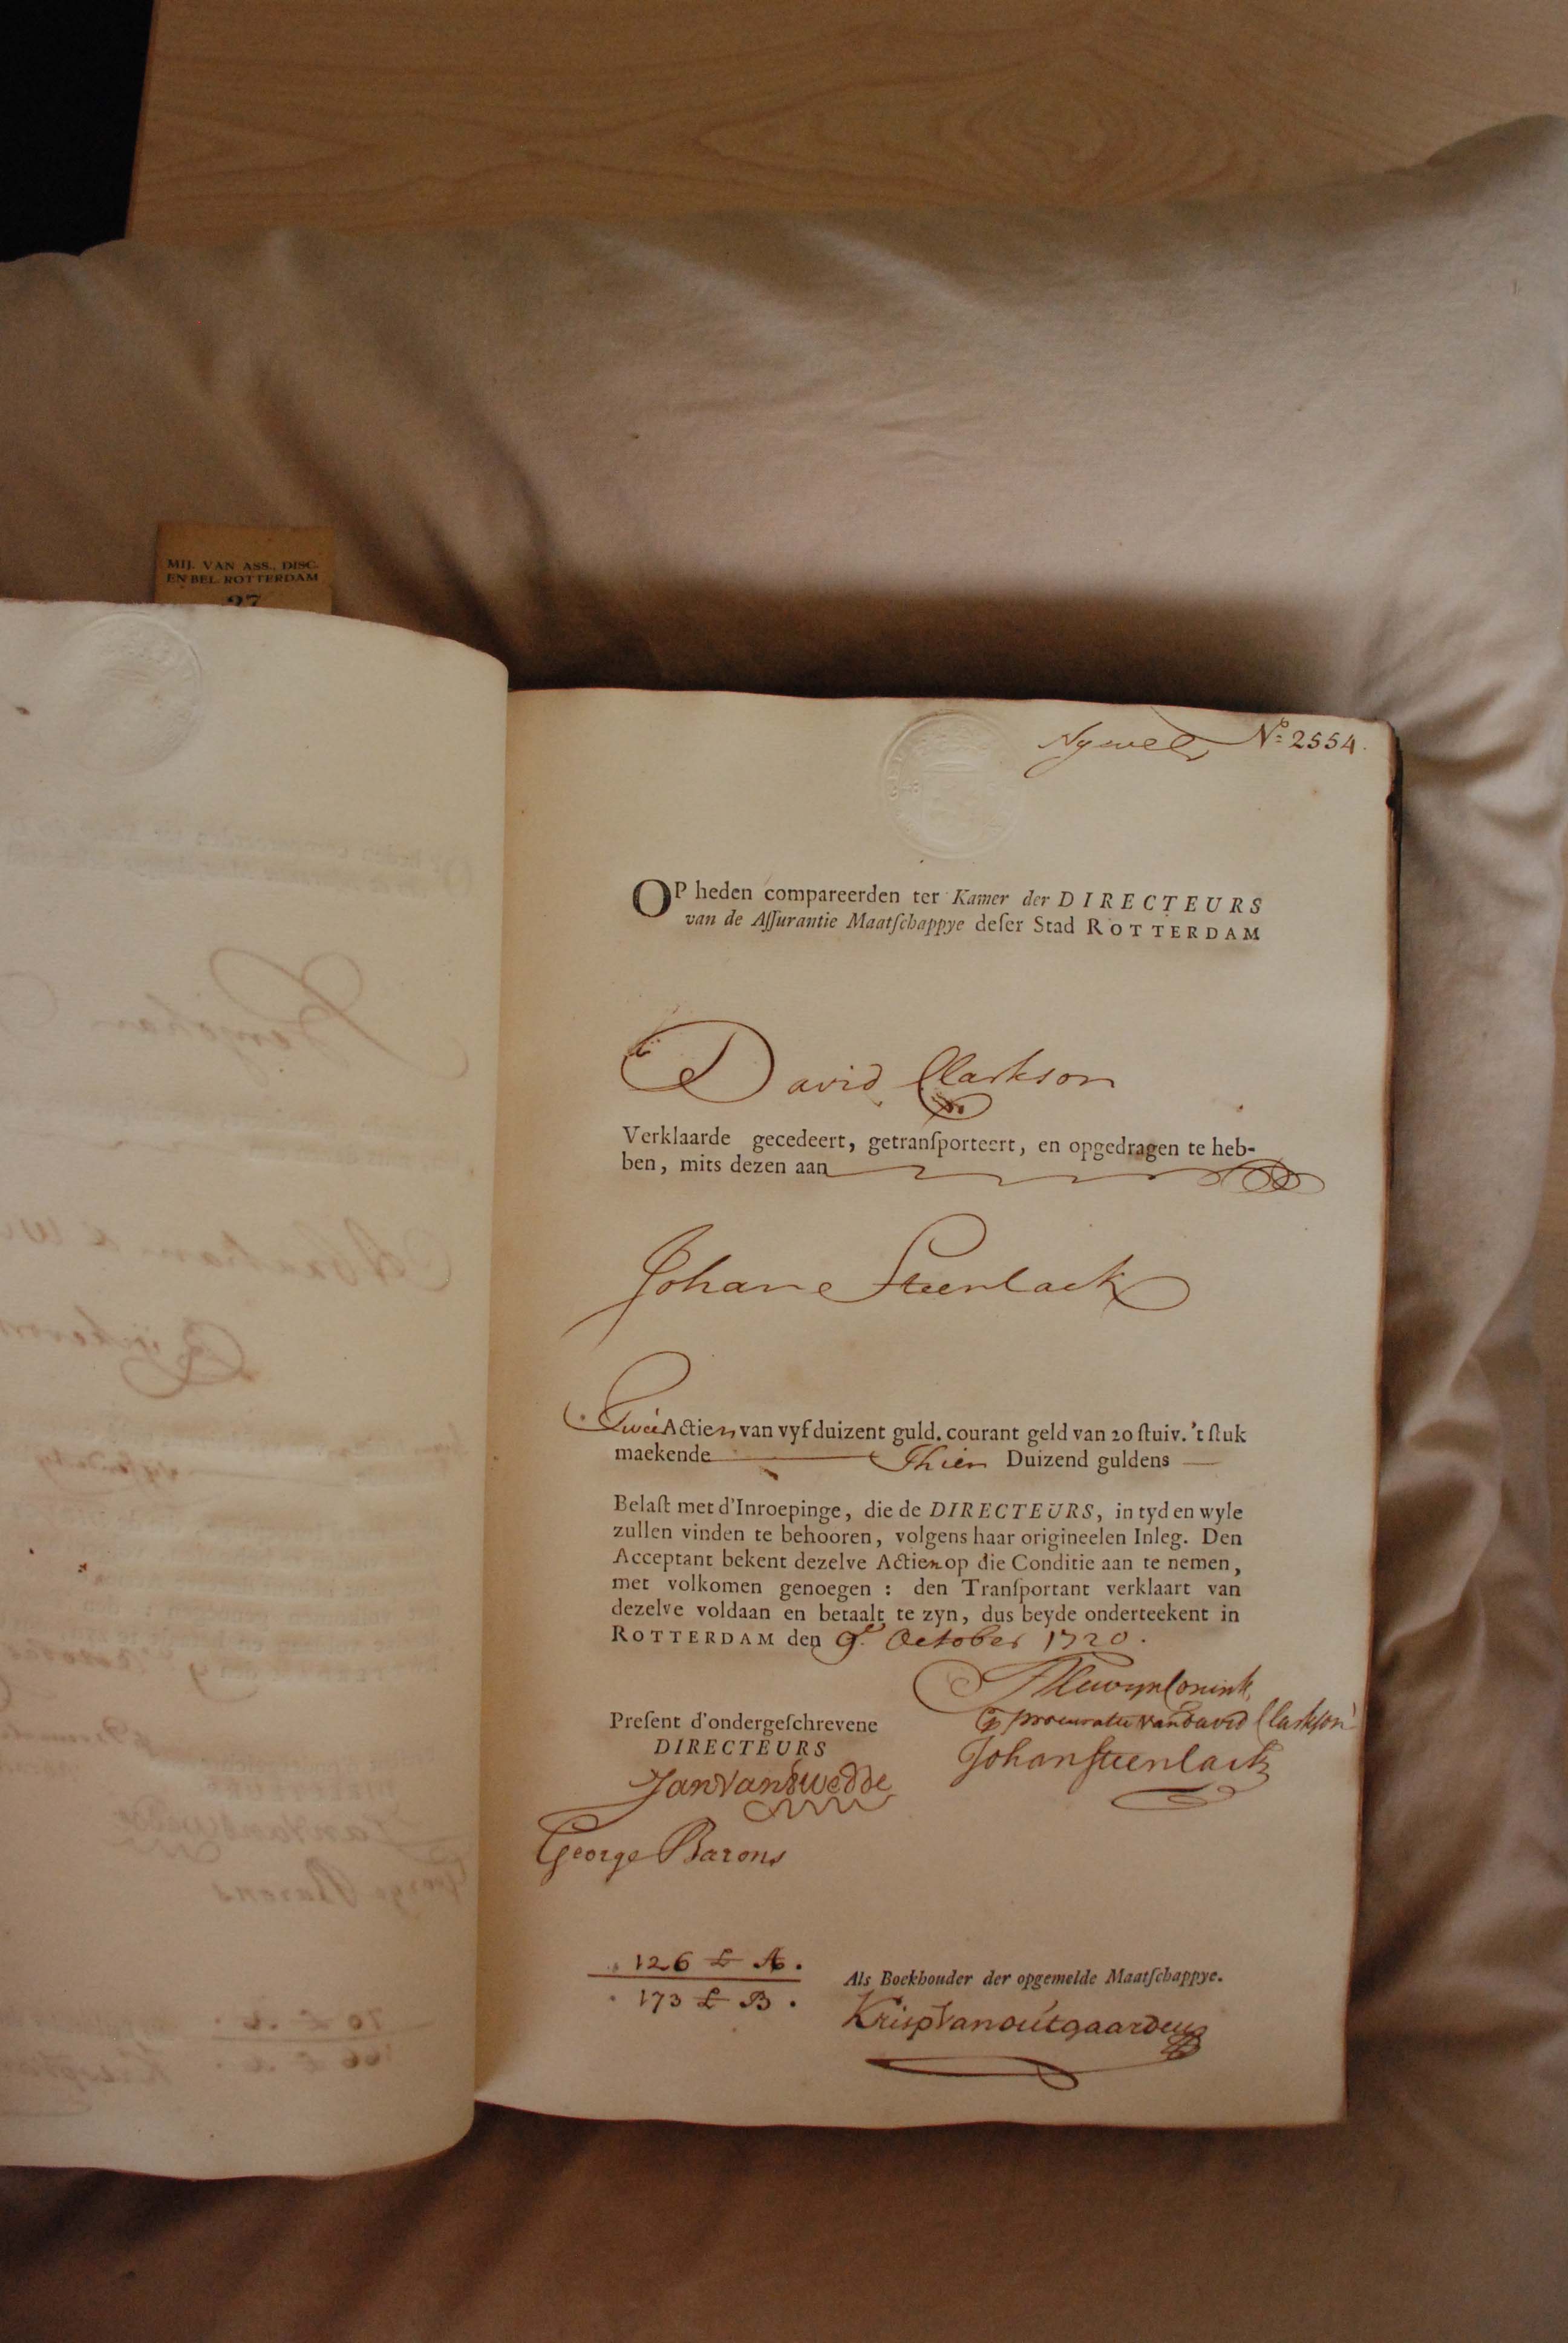 MIJ. VAN ASS., DISC.
EN BEL. ROTTERDAM
27
Nº 2554.
OP heden compareerden ter Kamer der DIRECTEURS
van de Aſſurantie Maatſchappye deſer Stad ROTTERDAM
David Clarkson
Verklaarde gecedeert, getranſporteert, en opgedragen te heb-
ben, mits dezen aan
Johan Steenlack
Twee Actien van vyf duizent guld. courant geld van 20 ſtuiv. 't ſtuk
maekende Thien Duizend guldens
Belaſt met d'Inroepinge, die de DIRECTEURS, in tyd en wyle
zullen vinden te behooren, volgens haar origineelen Inleg. Den
Acceptant bekent dezelve Actien op die Conditie aan te nemen,
met volkomen genoegen : den Tranſportant verklaart van
dezelve voldaan en betaalt te zyn, dus beyde onderteekent in
ROTTERDAM den 9e October 1720.
procuratie van David Clarkson
Preſent d'ondergeſchrevene
DIRECTEURS
Johan Steenlack
Jan van Swedde
George Barons
126 £ A.
173 £ B.
Als Boekhouder der opgemelde Maatſchappye.
Krisp van outgaarden